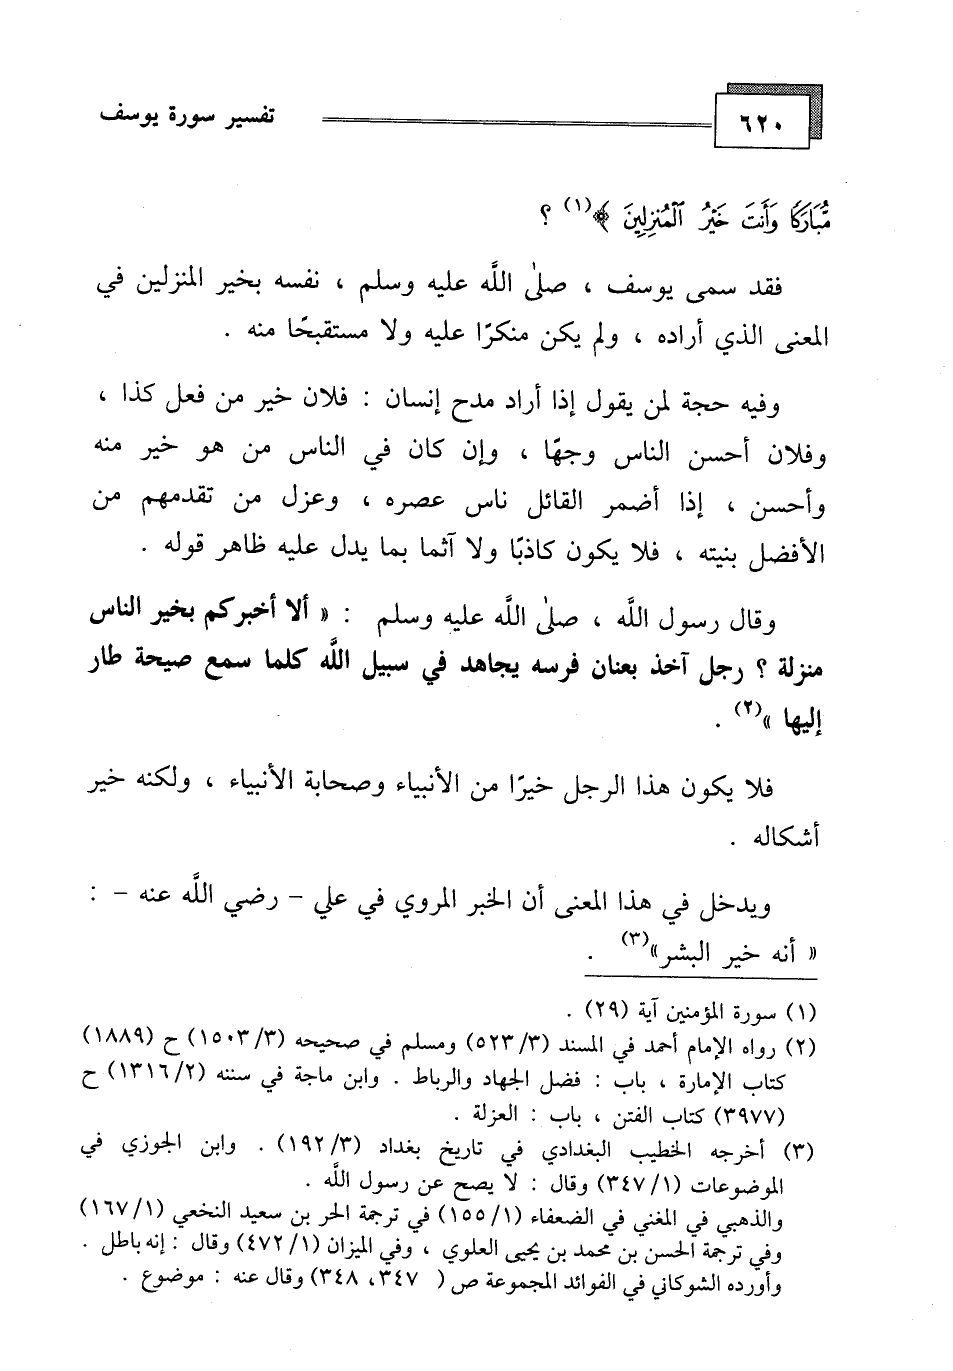 ٦٢٠
تفسير سورة يوسف
مُّبَارَكًا وَأَنتَ خَيْرُ ٱلْمُنزِلِينَ ﴾(١) ؟
فقد سمى يوسف ، صلىٰ اللَّه عليه وسلم ، نفسه بخير المنزلين في
المعنى الذي أراده ، ولم يكن منكرًا عليه ولا مستقبحًا منه .
وفيه حجة لمن يقول إذا أراد مدح إنسان : فلان خير من فعل كذا ،
وفلان أحسن الناس وجهًا ، وإن كان في الناس من هو خير منه
وأحسن ، إذا أضمر القائل ناس عصره ، وعزل من تقدمهم من
الأفضل بنيته ، فلا يكون كاذبًا ولا آثما بما يدل عليه ظاهر قوله .
وقال رسول اللَّه ، صلىٰ اللَّه عليه وسلم : « ألا أخبركم بخير الناس
منزلة ؟ رجل آخذ بعنان فرسه يجاهد في سبيل اللَّه كلما سمع صيحة طار
إليها »(٢) .
فلا يكون هذا الرجل خيرًا من الأنبياء وصحابة الأنبياء ، ولكنه خير
أشكاله .
ويدخل في هذا المعنى أن الخبر المروي في علي – رضي اللَّه عنه – :
« أنه خير البشر»(٣) .
(١) سورة المؤمنين آية (٢٩) .
(٢) رواه الإمام أحمد في المسند (٥٢٣/٣) ومسلم في صحيحه (١٥٠٣/٣) ح (١٨٨٩)
كتاب الإمارة ، باب : فضل الجهاد والرباط . وابن ماجة في سننه (١٣١٦/٢) ح
(٣٩٧٧) كتاب الفتن ، باب : العزلة .
(٣) أخرجه الخطيب البغدادي في تاريخ بغداد (١٩٢/٣) . وابن الجوزي في
الموضوعات (٣٤٧/١) وقال : لا يصح عن رسول اللَّه .
والذهبي في المغني في الضعفاء (١٥٥/١) في ترجمة الحر بن سعيد النخعي (١٦٧/١)
وفي ترجمة الحسن بن محمد بن يحيى العلوي ، وفي الميزان (٤٧٢/١) وقال : إنه باطل .
وأورده الشوكاني في الفوائد المجموعة ص ( ٣٤٧، ٣٤٨) وقال عنه : موضوع .